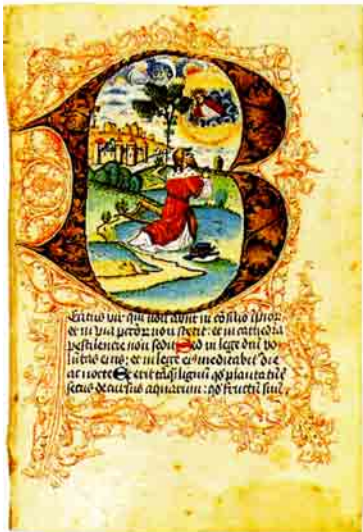 B
Eatus vir qui non abiit in cõsilio ĩpior
et in via pctõr nou stetit: et in cathedra
pestilencie non sedit Sed in lege dnĩ vo
lũtas eius: et in lege ei9 meditabit die
ac nocte Et erit tãq̃ lignũ qd plantatũ ẽ
secus decursus aquarum: qd fructũ suũ